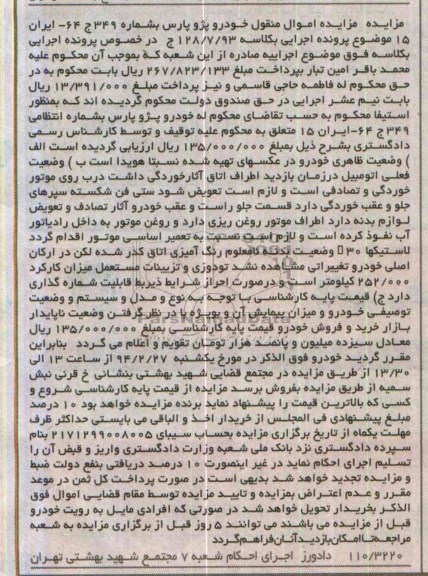 مزایده   مزایده اموال منقول خودرو پژو پارس بشماره ۳۴۹ ج ۶۴- ایران
۱۵ موضوع پرونده اجرایی بکلاسه ۱۲۸/۷/۹۳ ج در خصوص پرونده اجرایی
بکلاسه فوق موضوع اجراییه صادره از این شعبه که بموجب آن محکوم علیه
محمد باقر امین تبار بپرداخت مبلغ ۲۶۷/۸۲۳/۱۳۳ ریال بابت محکوم به در
حق محکوم له فاطمه حاجی قاسمی و نیز پرداخت مبلغ ۱۳/۳۹۱/۰۰۰ ریال
بابت نیم عشر اجرایی در حق صندوق دولت محکوم گردیده اند که بمنظور
استیفا محکوم به حسب تقاضای محکوم له خودرو پژو پارس بشماره انتظامی
۳۴۹ ج ۶۴-ایران ۱۵ متعلق به محکوم علیه توقیف و توسط کارشناس رسمی
دادگستری بشرح ذیل بمبلغ ۱۳۵/۰۰۰/۰۰۰ ریال ارزیابی گردیده است الف
) وضعیت ظاهری خودرو در عکسهای تهیه شده نسبتا هویدا است ب ) وضعیت
فعلی اتومبیل درزمان بازدید اطراف اتاق آثارخوردگی داشت درب روی موتور
خوردگی و تصادفی است و لازم است تعویض شود ستی فن شکسته سپرهای
جلو و عقب خوردگی دارد قسمت جلو راست و عقب خودرو آثار تصادف و تعویض
لوازم بدنه دارد اطراف موتور روغن ریزی دارد و روغن موتور به داخل رادیاتور
آب نفوذ کرده است و لازم است نسبت به تعمیر اساسی موتور اقدام گردد
لاستیکها ۳۰ وضعیت بدنه نامعلوم رنگ آمیزی اتاق کدر شده لکن در ارکان
اصلی خودرو تغییراتی مشاهده نشد تودوزی و تزیینات مستعمل میزان کارکرد
۲۵۲/۰۰۰ کیلومتر است و درصورت احراز شرایط ذیربط قابلیت شماره گذاری
دارد ج) قیمت پایه کارشناسی با توجه به نوع و مدل و سیستم و وضعیت
توصیفی خودرو و میزان پیمایش آن و بویژه با در نظر گرفتن وضعیت ناپایدار
بازار خرید و فروش خودرو قیمت پایه کارشناسی بمبلغ ۱۳۵/۰۰۰/۰۰۰ ریال
معادل سیزده میلیون و پانصد هزار تومان تقویم و اعلام می گردد   بنابراین
مقرر گردید خودرو فوق الذکر در مورخ یکشنبه ۹۴/۲/۲۷ از ساعت ۱۳ الی
۱۳/۳۰ از طریق مزایده در مجتمع قضایی شهید بهشتی بنشانی خ قرنی نبش
سمیه از طریق مزایده بفروش برسد مزایده از قیمت پایه کارشناسی شروع و
کسی که بالاترین قیمت را پیشنهاد نماید برنده مزایده خواهد بود ۱۰ درصد
مبلغ پیشنهادی فی المجلس از خریدار اخذ و الباقی می بایستی حداکثر ظرف
مهلت یکماه از تاریخ برگزاری مزایده بحساب سیبای ۲۱۷۱۲۹۹۰۰۸۰۰۵ بنام
سپرده دادگستری نزد بانک ملی شعبه وزارت دادگستری واریز و قبض آن را
تسلیم اجرای احکام نماید در غیر اینصورت ۱۰ درصد دریافتی بنفع دولت ضبط
و مزایده تجدید خواهد شد بدیهی است در صورت پرداخت کل ثمن در موعد
مقرر و عدم اعتراض بمزایده و تایید مزایده توسط مقام قضایی اموال فوق
الذکر بخریدار تحویل خواهد شد در صورتی که افرادی مایل به رویت خودرو
قبل از مزایده می باشند می توانند ۵ روز قبل از برگزاری مزایده به شعبه
مراجعه تا امکان بازدید آنان فراهم گردد
۱۱۰/۳۲۲۰   دادورز  اجرای احکام شعبه ۷ مجتمع شهید بهشتی تهران